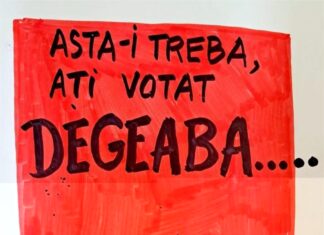 ASTA-i TREBA,
AȚI VOTAT
DEGEABA.....